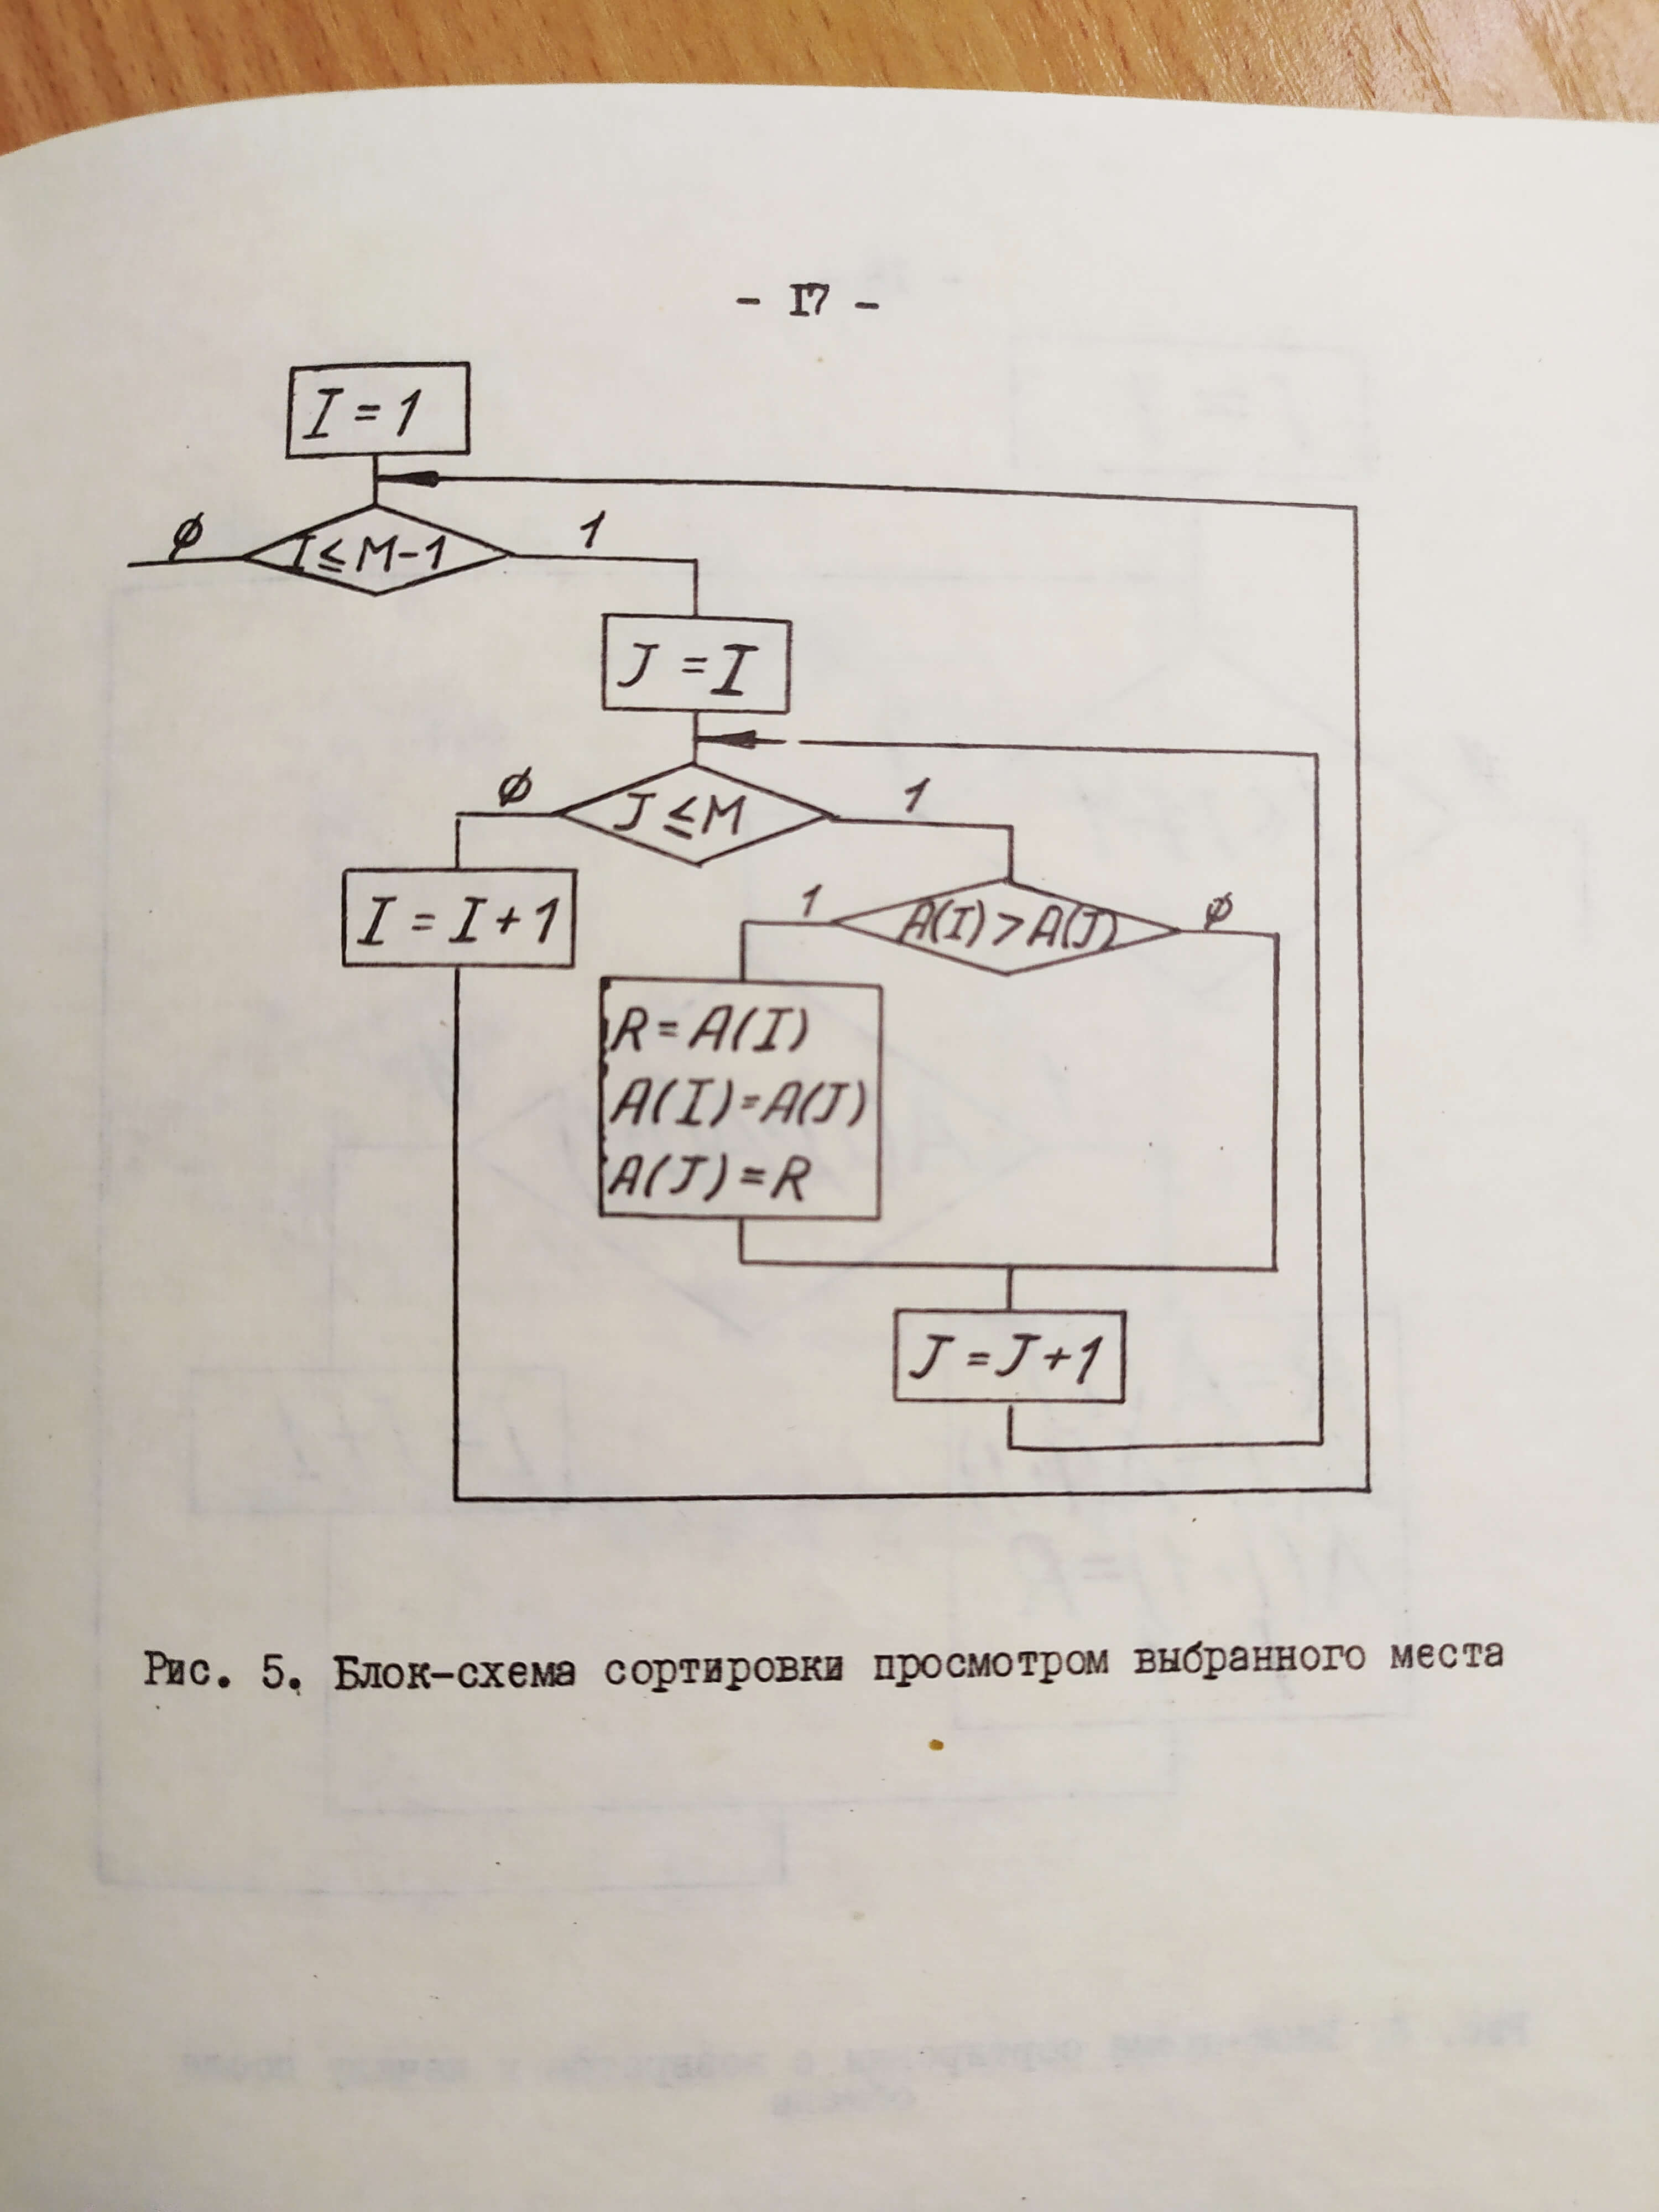 - I7 -
I = 1
ø
I ≤ M-1
1
J = I
ø
J ≤ M
1
I = I + 1
1
A(I) > A(J)
ø
R = A(I)
A(I) = A(J)
A(J) = R
J = J + 1
Рис. 5. Блок-схема сортировки просмотром выбранного места